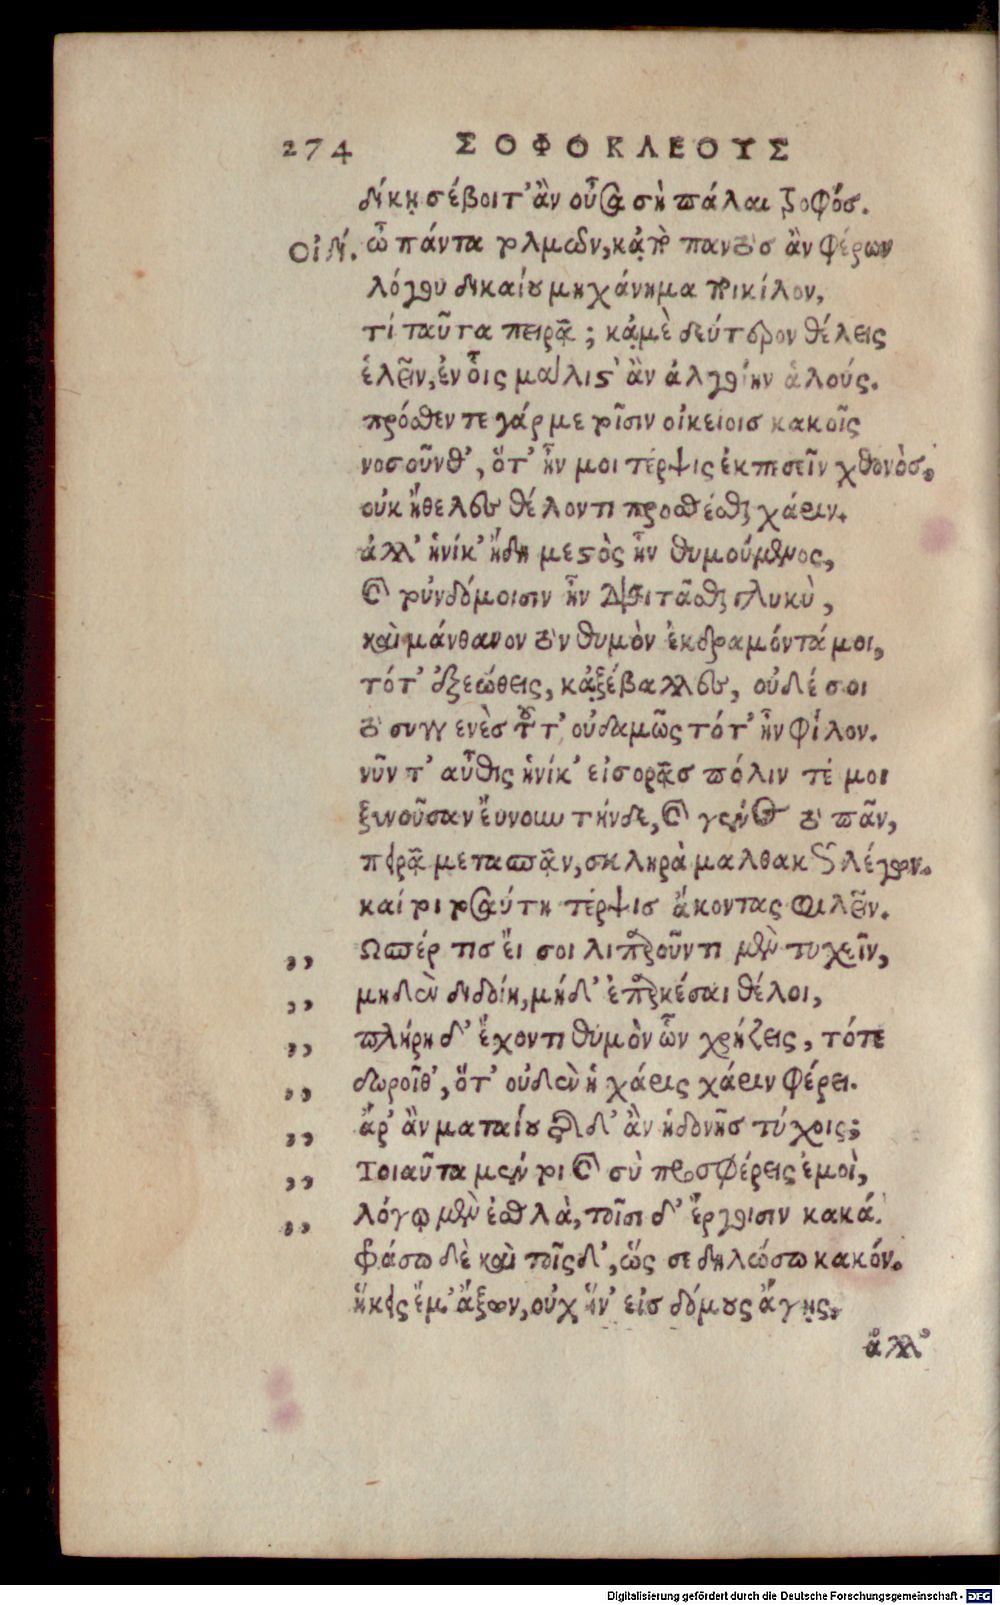 274 ΣΟΦΟΚΛΕΟΥΣ
δίκῃ σέβοιτ' ἂν οὖσα σὴ πάλαι τροφός.
Οἰδ. ὦ πάντα τολμῶν, κἀπὸ παντὸς ἂν φέρων
λόγου δικαίου μηχάνημα ποικίλον,
τί ταῦτα πειρᾷ; κἀμὲ δεύτερον θέλεις
ἑλεῖν, ἐν οἷς μάλιστ' ἂν ἀλγοίην ἁλούς.
πρόσθεν τε γάρ με τοῖσιν οἰκείοισ κακοῖς
νοσοῦνθ', ὅτ' ἦν μοι τέρψις ἐκπεσεῖν χθονὸς,
οὐκ ἤθελες θέλοντι προσθέσθαι χάριν.
ἀλλ' ἡνίκ' ἤδη μεστὸς ἦν θυμούμενος,
καὶ τοὐν δόμοισιν ἦν διαιτᾶσθαι γλυκὺ,
καὶ μάνθανον τὸν θυμὸν ἐκδραμόντά μοι,
τότ' ἐξεώθεις, κἀξέβαλλες, οὐδέ σοι
τὸ συγγενὲς τοῦτ' οὐδαμῶς τότ' ἦν φίλον.
νῦν τ' αὖθις ἡνίκ' εἰσορᾷς πόλιν τέ μοι
ξυνοῦσαν εὔνουν τήνδε, καὶ γένος τὸ πᾶν,
πειρᾷ μετασπᾷν, σκληρὰ μαλθακῶς λέγων.
καί τοι τοσαύτη τέρψισ ἄκοντας φιλεῖν.
,, Ωσπέρ τισ εἴ σοι λιπαροῦντι μὲν τυχεῖν,
,, μηδὲν διδοίη, μήδ' ἐπαρκέσαι θέλοι,
,, πλήρη δ' ἔχοντι θυμὸν ὧν χρῄζεις, τότε
,, δωροῖθ', ὅτ' οὐδὲν ἡ χάρις χάριν φέρει.
,, ἆρ' ἂν ματαίου τῆσδ' ἂν ἡδονῆς τύχοις;
,, Τοιαῦτα μέντοι καὶ σὺ προσφέρεις ἐμοὶ,
,, λόγῳ μὲν ἐσθλὰ, τοῖσι δ' ἔργοισιν κακά.
φράσω δὲ καὶ τοῖςδ', ὥς σε δηλώσω κακόν.
ἥκεις ἔμ' ἄξων, οὐχ ἵν' εἰσ δόμους ἄγῃς,
ἀλλ'
Digitalisierung gefördert durch die Deutsche Forschungsgemeinschaft - DFG